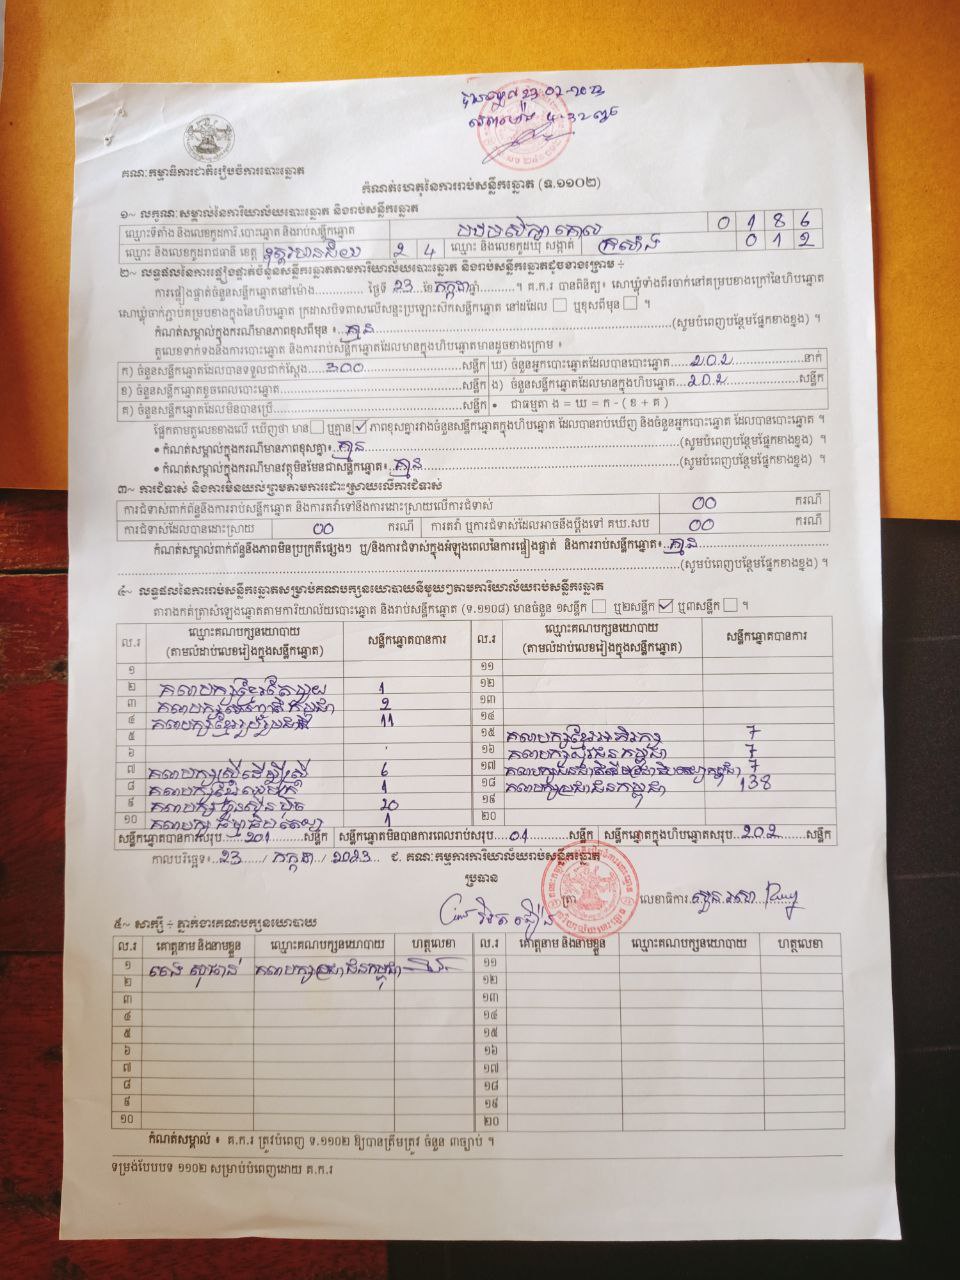 គណៈកម្មាធិការជាតិរៀបចំការបោះឆ្នោត
កំណត់ហេតុនៃការរាប់សន្លឹកឆ្នោត (ទ.១១០២)
១~ លក្ខណៈសម្គាល់នៃការិយាល័យបោះឆ្នោត និងរាប់សន្លឹកឆ្នោត
ឈ្មោះទីតាំង និងលេខកូដការិ.បោះឆ្នោត និងរាប់សន្លឹកឆ្នោត 0 1 8 6
ឈ្មោះ និងលេខកូដរាជធានី ខេត្ត ឧត្តរមានជ័យ 2 4 ឈ្មោះ និងលេខកូដឃុំ សង្កាត់ 0 1 2
២~ លទ្ធផលនៃការផ្ទៀងផ្ទាត់ចំនួនសន្លឹកឆ្នោតតាមការិយាល័យបោះឆ្នោត និងរាប់សន្លឹកឆ្នោតដូចខាងក្រោម ÷
ការផ្ទៀងផ្ទាត់ចំនួនសន្លឹកឆ្នោតនៅម៉ោង............... ថ្ងៃទី 23 ខែ កក្កដា ឆ្នាំ.........។ គ.ក.រ បានពិនិត្យ៖ សោឃ្លុំទាំងពីរចាក់នៅគម្របខាងក្រៅនៃហិបឆ្នោត
សោឃ្លុំចាក់ភ្ជាប់គម្របខាងក្នុងនៃហិបឆ្នោត ក្រដាសបិទពាសលើសន្ទះប្រឡោះសឹកសន្លឹកឆ្នោត នៅដដែល ☐ ឬខុសពីមុន ☐ ។
កំណត់សម្គាល់ក្នុងករណីមានភាពខុសពីមុន ៖ គ្មាន (សូមបំពេញបន្ថែមផ្នែកខាងខ្នង) ។
តួលេខទាក់ទងនឹងការបោះឆ្នោត និងការរាប់សន្លឹកឆ្នោតដែលមានក្នុងហិបឆ្នោតមានដូចខាងក្រោម ៖
ក) ចំនួនសន្លឹកឆ្នោតដែលបានទទួលជាក់ស្ដែង 300 សន្លឹក ឃ) ចំនួនអ្នកបោះឆ្នោតដែលបានបោះឆ្នោត 202 នាក់
ខ) ចំនួនសន្លឹកឆ្នោតខូចពេលបោះឆ្នោត សន្លឹក ង) ចំនួនសន្លឹកឆ្នោតដែលមានក្នុងហិបឆ្នោត 202 សន្លឹក
គ) ចំនួនសន្លឹកឆ្នោតដែលមិនបានប្រើ សន្លឹក • ជាធម្មតា ង = ឃ = ក - ( ខ + គ )
ផ្អែកតាមតួលេខខាងលើ ឃើញថា មាន ☐ ឬគ្មាន ☑ ភាពខុសគ្នារវាងចំនួនសន្លឹកឆ្នោតក្នុងហិបឆ្នោត ដែលបានរាប់ឃើញ និងចំនួនអ្នកបោះឆ្នោត ដែលបានបោះឆ្នោត ។
• កំណត់សម្គាល់ក្នុងករណីមានភាពខុសគ្នា៖ គ្មាន (សូមបំពេញបន្ថែមផ្នែកខាងខ្នង) ។
• កំណត់សម្គាល់ក្នុងករណីមានវត្ថុមិនមែនជាសន្លឹកឆ្នោត៖ គ្មាន (សូមបំពេញបន្ថែមផ្នែកខាងខ្នង) ។
៣~ ការជំទាស់ និងការមិនយល់ព្រមតាមការដោះស្រាយលើការជំទាស់
ការជំទាស់ពាក់ព័ន្ធនឹងការរាប់សន្លឹកឆ្នោត និងការតវ៉ាទៅនឹងការដោះស្រាយលើការជំទាស់ 00 ករណី
ការជំទាស់ដែលបានដោះស្រាយ 00 ករណី ការតវ៉ា ឬការជំទាស់ដែលអាចនឹងប្ដឹងទៅ គឃ.សប 00 ករណី
កំណត់សម្គាល់ពាក់ព័ន្ធនឹងភាពមិនប្រក្រតីផ្សេងៗ ឬ/និងការជំទាស់ក្នុងអំឡុងពេលនៃការផ្ទៀងផ្ទាត់ និងការរាប់សន្លឹកឆ្នោត៖ គ្មាន
(សូមបំពេញបន្ថែមផ្នែកខាងខ្នង) ។
៤~ លទ្ធផលនៃការរាប់សន្លឹកឆ្នោតសម្រាប់គណបក្សនយោបាយនីមួយៗតាមការិយាល័យរាប់សន្លឹកឆ្នោត
តារាងកត់ត្រាសំឡេងឆ្នោតតាមការិយាល័យបោះឆ្នោត និងរាប់សន្លឹកឆ្នោត (ទ.១១០៨) មានចំនួន ១សន្លឹក ☐ ឬ២សន្លឹក ☑ ឬ៣សន្លឹក ☐ ។
ល.រ ឈ្មោះគណបក្សនយោបាយ (តាមលំដាប់លេខរៀងក្នុងសន្លឹកឆ្នោត) សន្លឹកឆ្នោតបានការ ល.រ ឈ្មោះគណបក្សនយោបាយ (តាមលំដាប់លេខរៀងក្នុងសន្លឹកឆ្នោត) សន្លឹកឆ្នោតបានការ
១ ១១
២ គណបក្សខ្មែរតែមួយ 1 ១២
៣ 2 ១៣
៤ គណបក្សខ្មែររួបរួមជាតិ 11 ១៤
៥ ១៥ គណបក្សខ្មែរអភិរក្ស 7
៦ ១៦ គណបក្សយុវជនកម្ពុជា 7
៧ គណបក្សស្រីដើម្បីស្រី 6 ១៧ 7
៨ 1 ១៨ គណបក្សប្រជាជនកម្ពុជា 138
៩ គណបក្សហ្វ៊ុនស៊ិនប៉ិច 20 ១៩
១០ គណបក្សធម្មាធិបតេយ្យ 1 ២០
សន្លឹកឆ្នោតបានការសរុប 201 សន្លឹក សន្លឹកឆ្នោតមិនបានការពេលរាប់សរុប 01 សន្លឹក សន្លឹកឆ្នោតក្នុងហិបឆ្នោតសរុប 202 សន្លឹក
កាលបរិច្ឆេទ៖ 23 / កក្កដា / 2023 ជ. គណៈកម្មការការិយាល័យរាប់សន្លឹកឆ្នោត
ប្រធាន
ត្រា លេខាធិការ
៥~ សាក្សី ÷ ភ្នាក់ងារគណបក្សនយោបាយ
ល.រ គោត្តនាម និងនាមខ្លួន ឈ្មោះគណបក្សនយោបាយ ហត្ថលេខា ល.រ គោត្តនាម និងនាមខ្លួន ឈ្មោះគណបក្សនយោបាយ ហត្ថលេខា
១ គណបក្សប្រជាជនកម្ពុជា ១១
២ ១២
៣ ១៣
៤ ១៤
៥ ១៥
៦ ១៦
៧ ១៧
៨ ១៨
៩ ១៩
១០ ២០
កំណត់សម្គាល់ ៖ គ.ក.រ ត្រូវបំពេញ ទ.១១០២ ឱ្យបានត្រឹមត្រូវ ចំនួន ៣ច្បាប់ ។
ទម្រង់បែបបទ ១១០២ សម្រាប់បំពេញដោយ គ.ក.រ